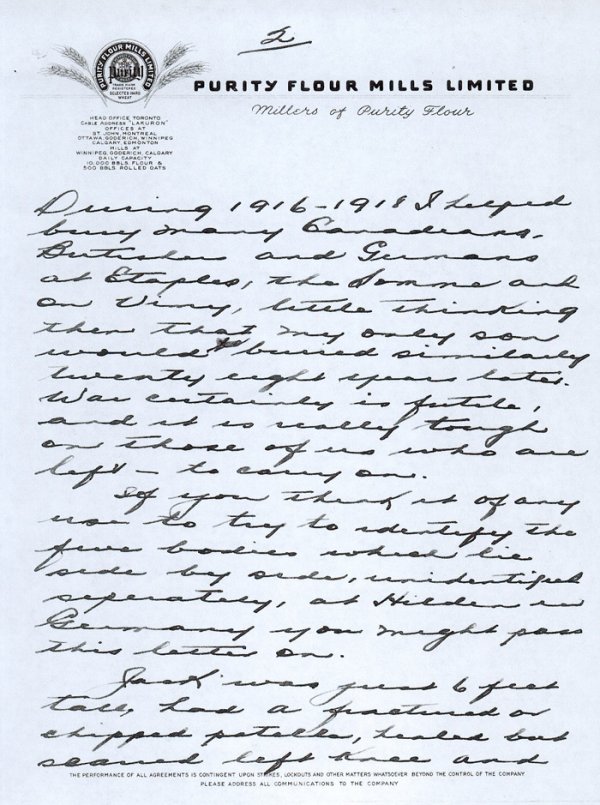 2
PURITY FLOUR MILLS LIMITED
Millers of Purity Flour
PURITY FLOUR MILLS LIMITED
HEAD OFFICE TORONTO
CABLE ADDRESS "LAKURON"
OFFICES AT
ST. JOHN, MONTREAL
OTTAWA, GODERICH, WINNIPEG
CALGARY, EDMONTON
MILLS AT
WINNIPEG, GODERICH, CALGARY
DAILY CAPACITY
10,000 BBLS. FLOUR &
500 BBLS ROLLED OATS
During 1916-1918 I helped
bury many Canadians,
Britishers and Germans
at Etaples, the Somme and
on Vimy, little thinking
then that my only son
would be buried similarly
twenty eight years later.
War certainly is futile,
and it is really tough
on those of us who are
left - to carry on.
If you think it of any
use to try to identify the
five bodies which lie
side by side, unidentified
seperately, at Hilden in
Germany you might pass
this letter on.
Jack was just 6 feet
tall, had a fractured or
chipped patella, healed but
scarred left knee and
THE PERFORMANCE OF ALL AGREEMENTS IS CONTINGENT UPON STRIKES, LOCKOUTS AND OTHER MATTERS WHATSOEVER BEYOND THE CONTROL OF THE COMPANY
PLEASE ADDRESS ALL COMMUNICATIONS TO THE COMPANY